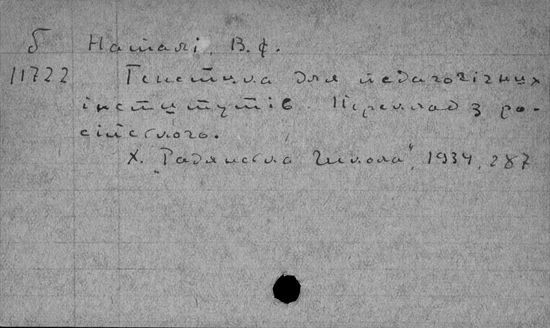 б Наталі, В.ф.
11722 Генетика для педагогічних
інститутів. Переклад з ро-
сійського.
Х. "Радянська Школа", 1934, 287